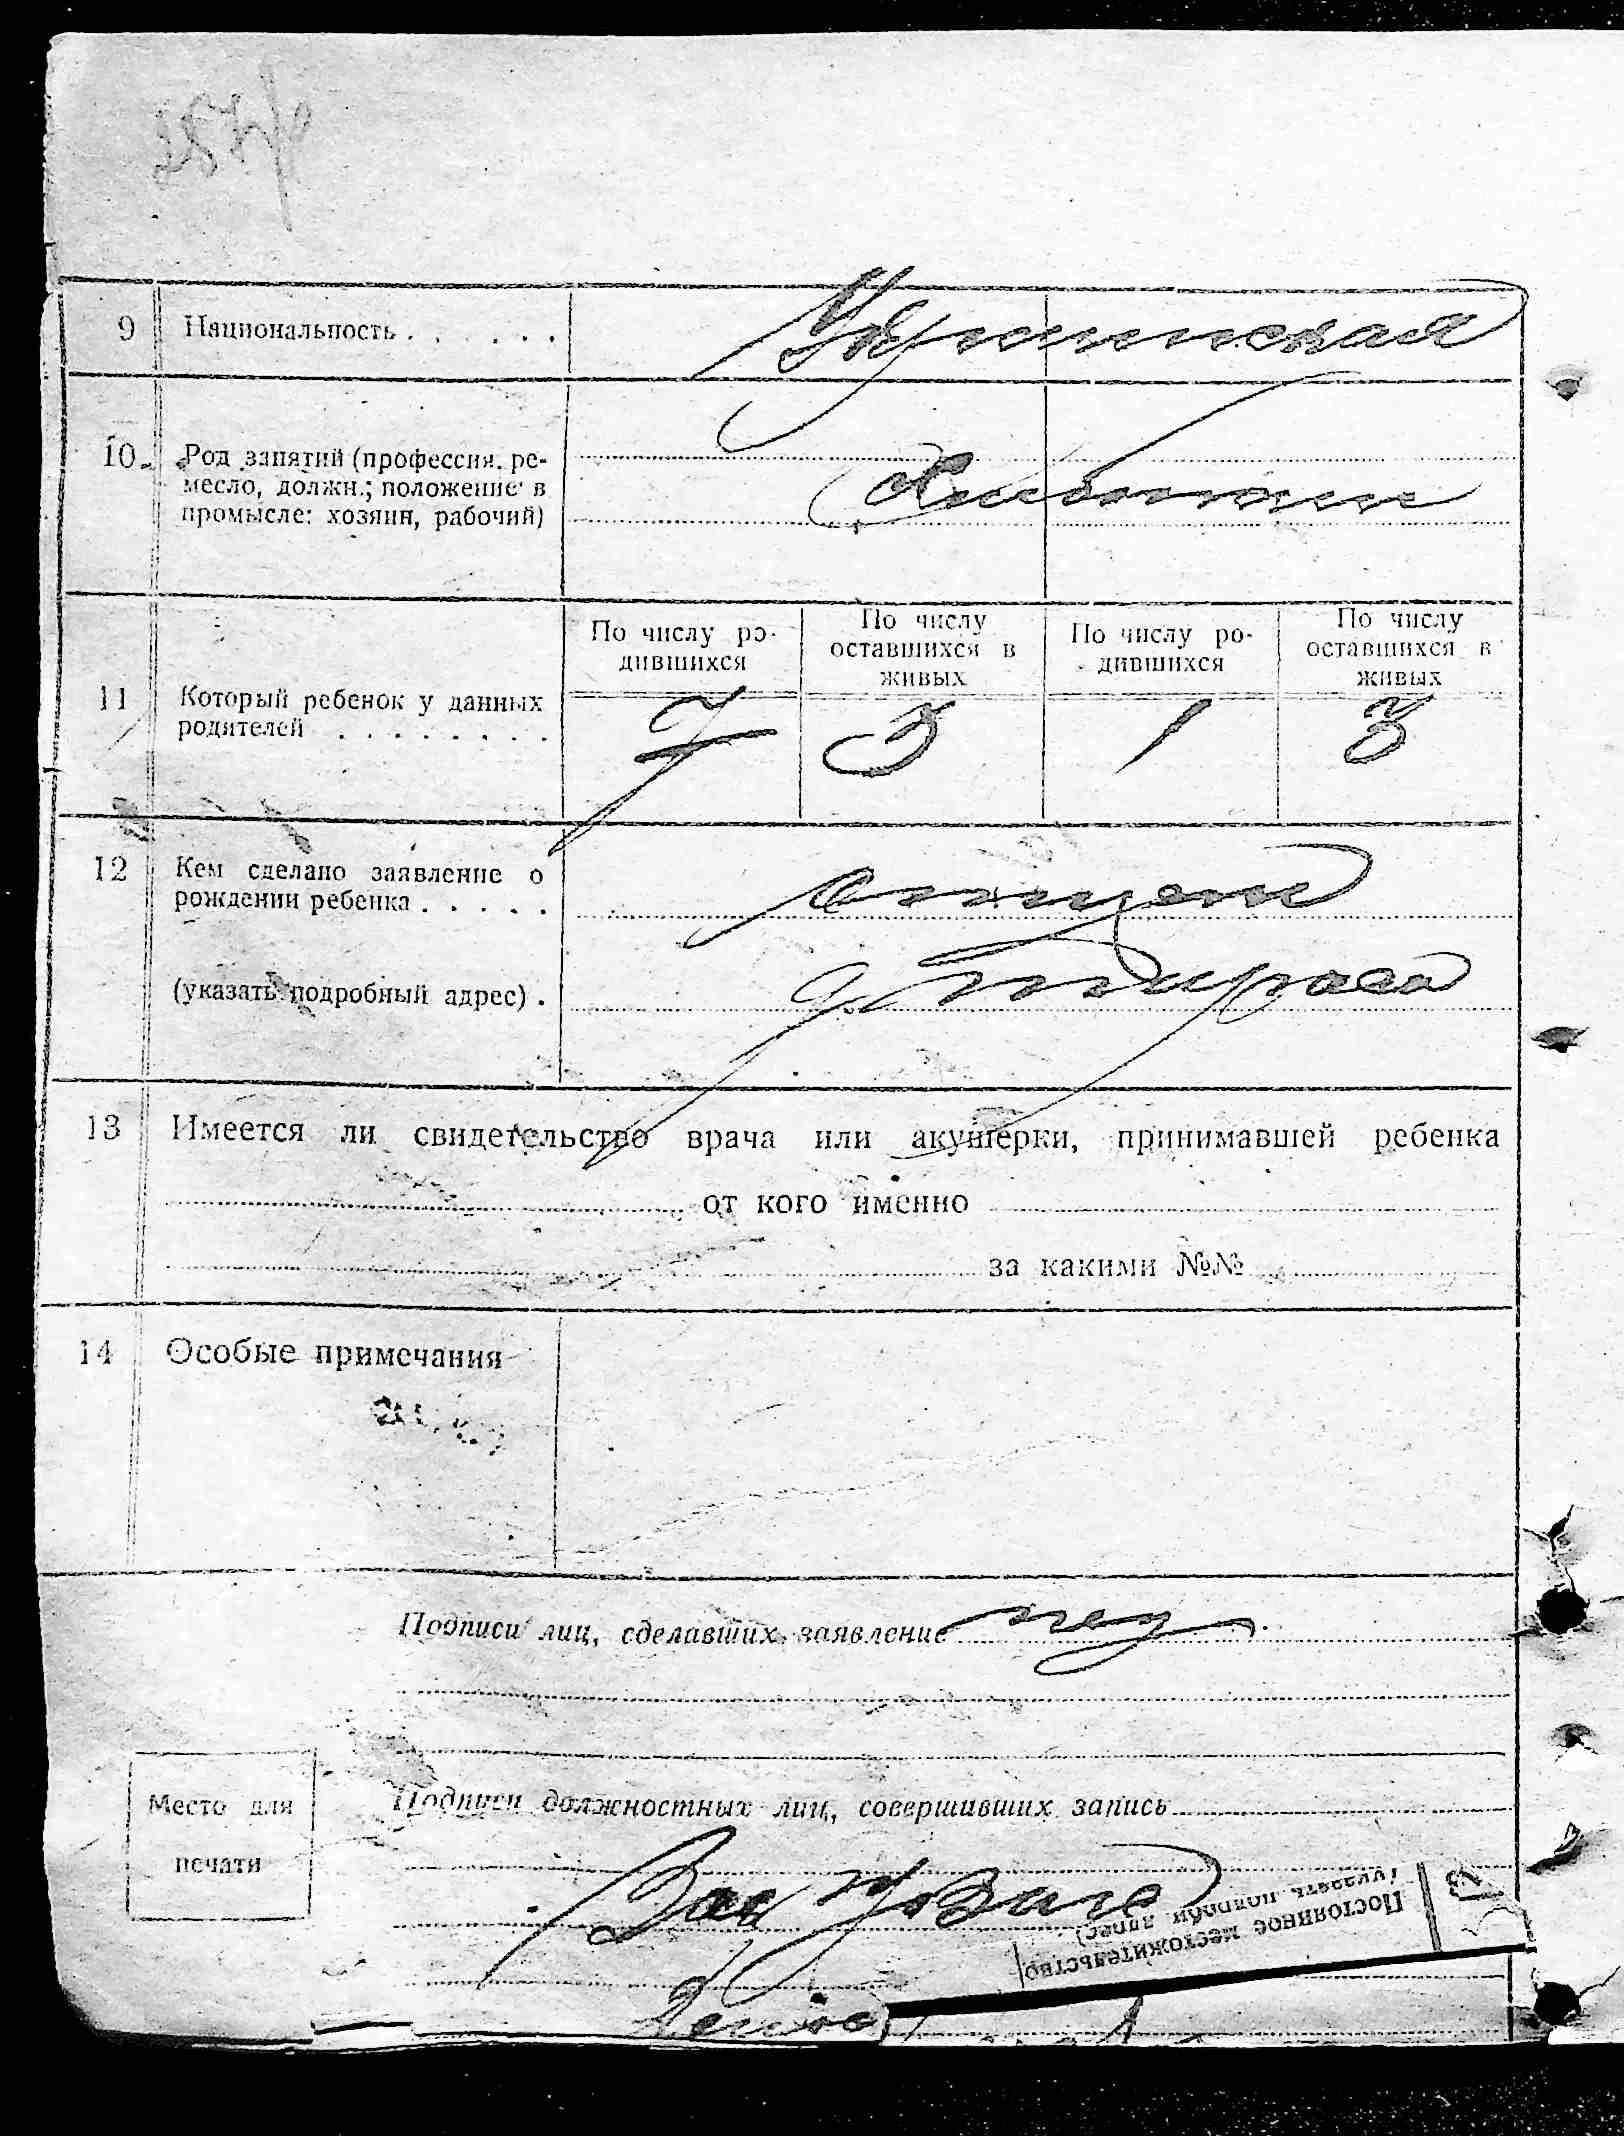 9 Национальность . . . . . . Украинская
10. Род занятий (профессия, ре-
месло, должн.; положение в
промысле: хозяин, рабочий)
Хлебопашец
По числу ро-
дившихся
По числу
оставшихся в
живых
По числу ро-
дившихся
По числу
оставшихся в
живых
11 Который ребенок у данных
родителей . . . . . . . .
7 5 1 3
12 Кем сделано заявление о
рождении ребенка . . . . . отцом
(указать подробный адрес) .
13 Имеется ли свидетельство врача или акушерки, принимавшей ребенка
от кого именно
за какими №№
14 Особые примечания
Подписи лиц, сделавших заявление
Подписи должностных лиц, совершивших запись
Место для
печати
Постоянное местожительство
(указать подробн. адрес)